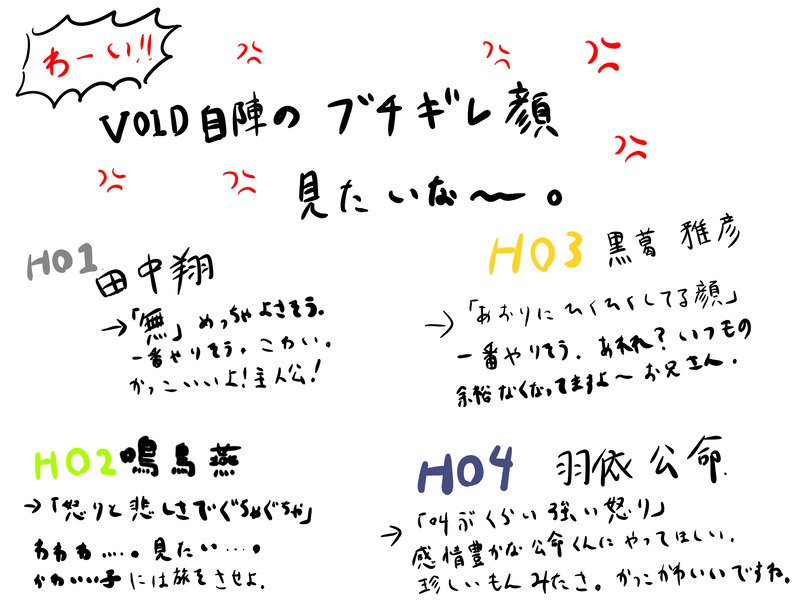 わーい!!
VOID自陣の ブチギレ顔
見たいな〜。
HO1 田中翔
→「無」めっちゃよさそう。
一番やりそう。こわい。
かっこいいよ!主人公!
HO3 黒葛 雅彦
→「あおりにひくひくしてる顔」
一番やりそう。あれれ?いつもの
余裕なくなってますよ〜お兄さん。
HO2 鳴鳥燕
→「怒りと悲しさでぐちゃぐちゃ」
わわわ‥‥。見たい‥‥。
かわいい子には旅をさせよ。
HO4 羽依 公命
→「叫ぶくらい強い怒り」
感情豊かな公命くんにやってほしい。
珍しいもんみたさ。かっこかわいいですね。